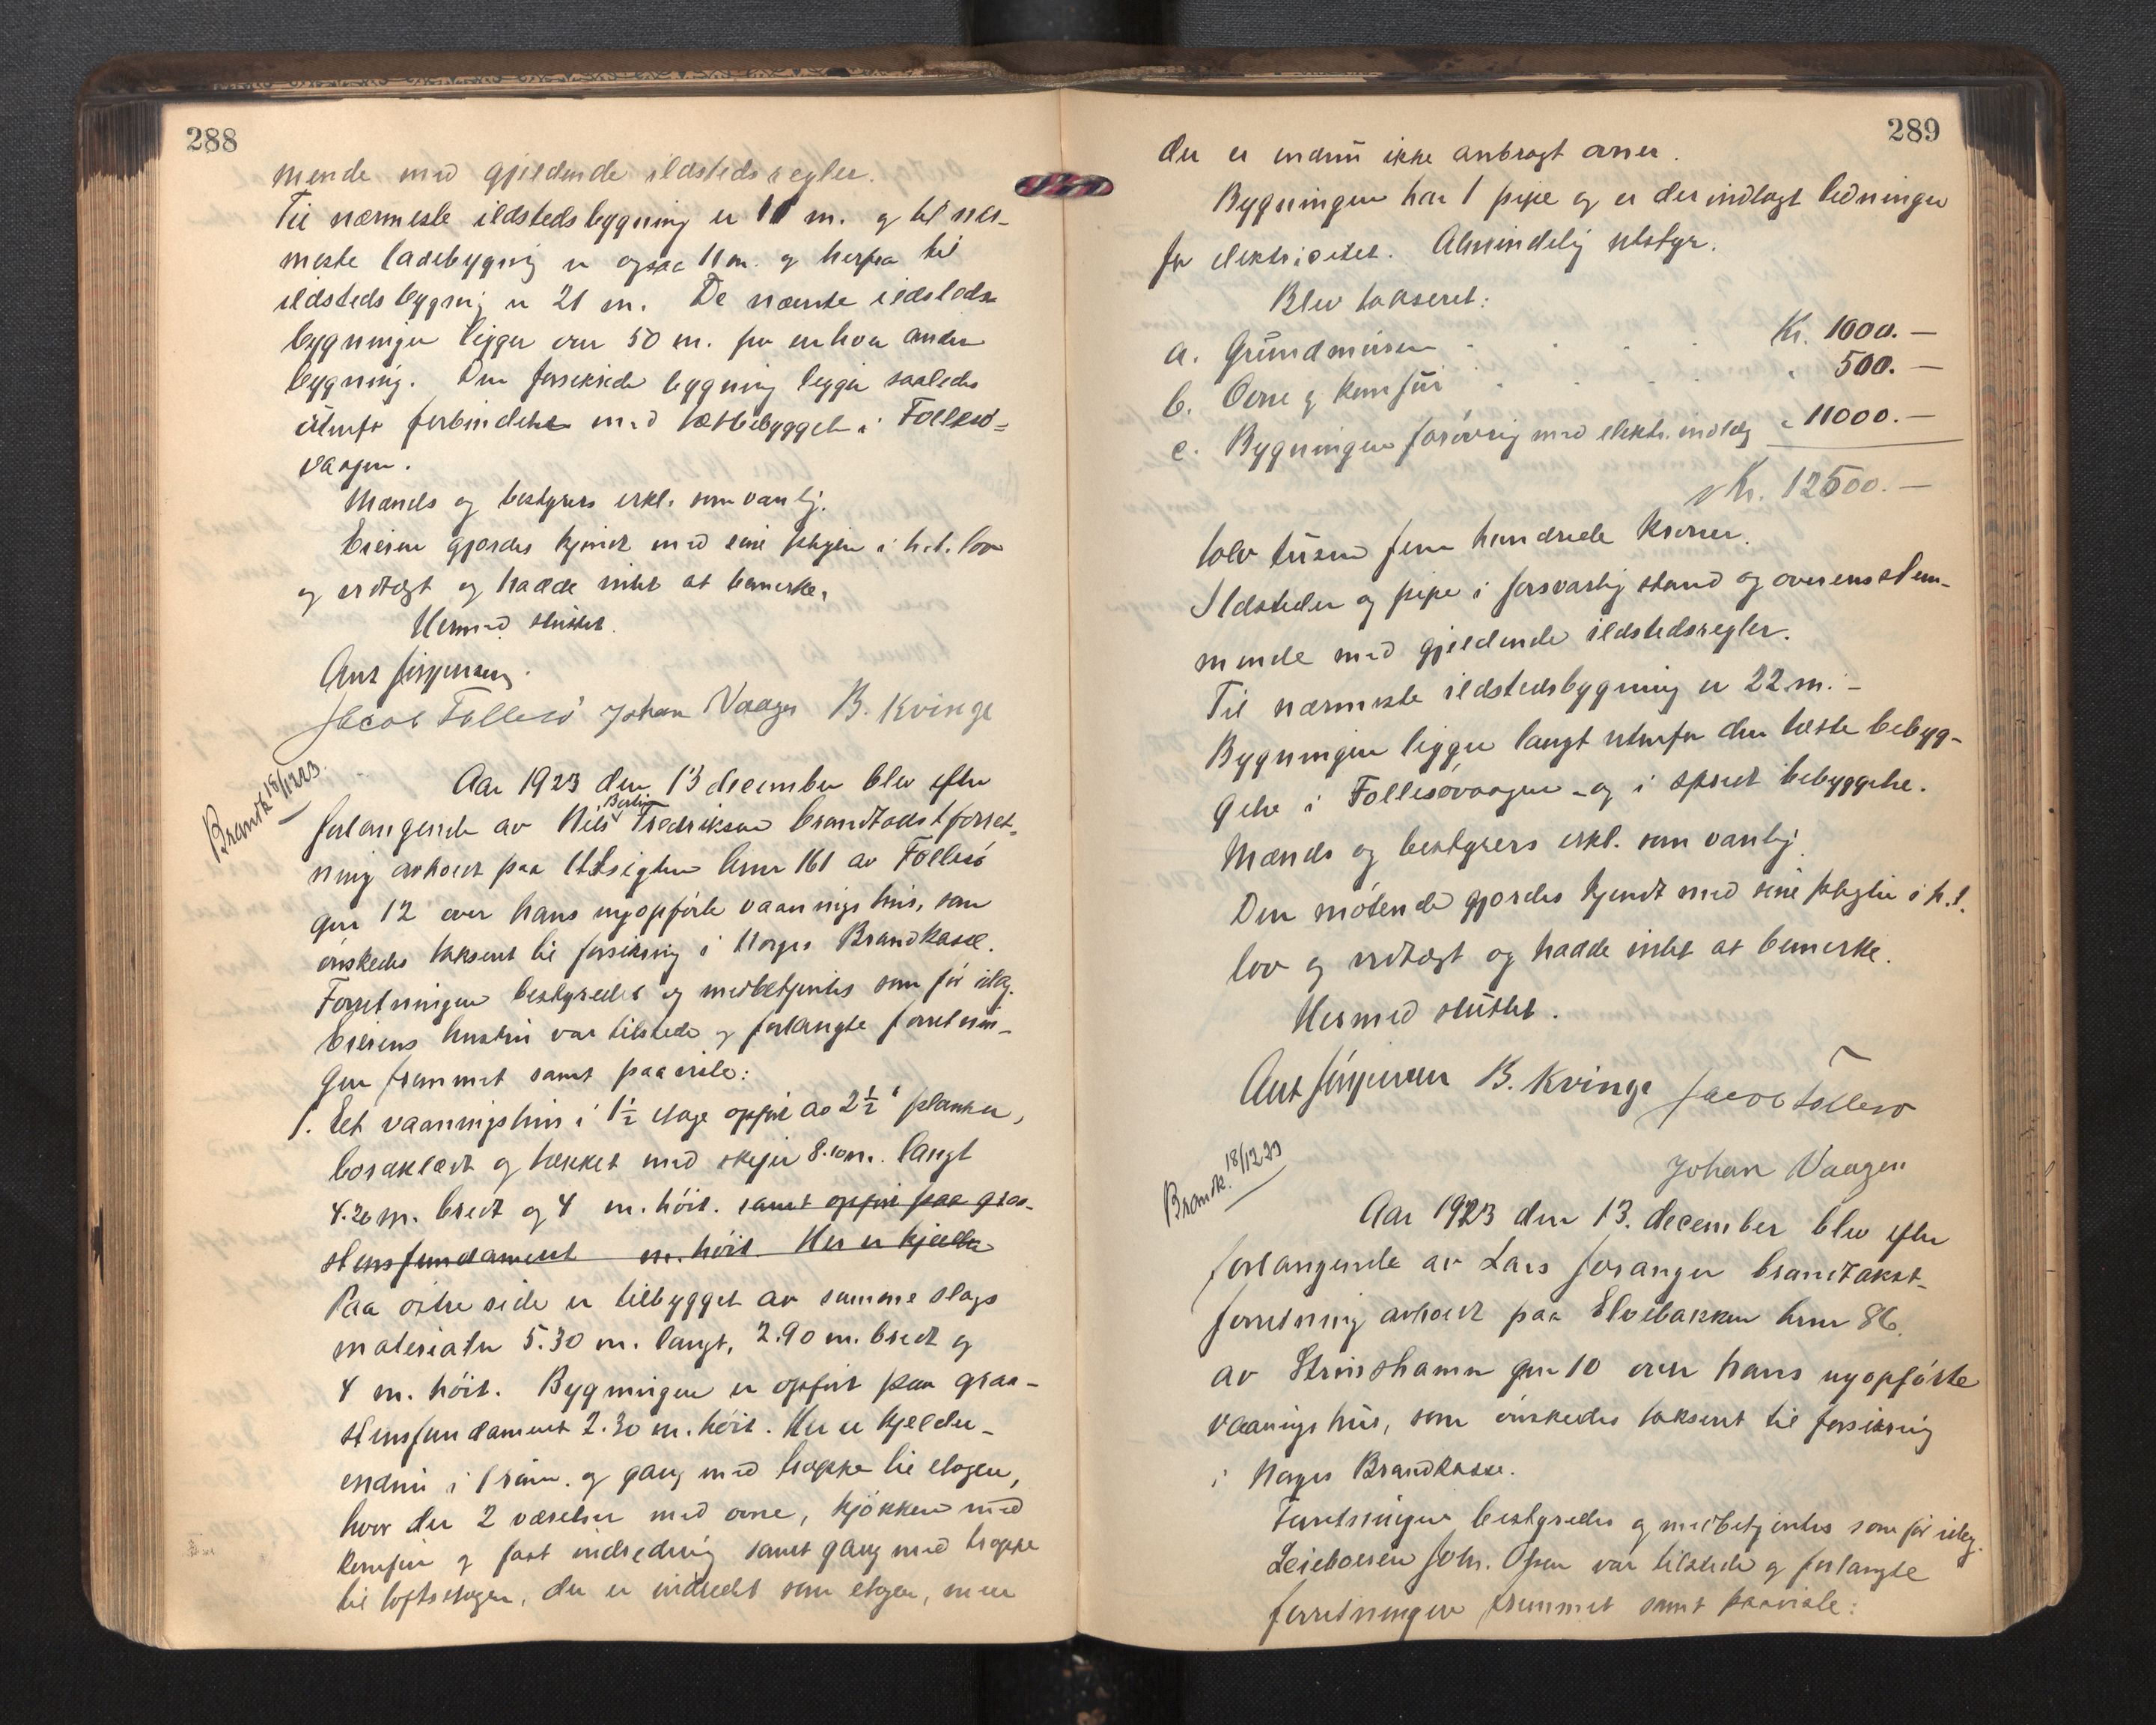 288
mende med gjeldende ildstedsregler.
Til nærmeste ildstedsbygning er 11 m. og til nær-
meste ladebygning er ogsaa 11 m. og herfra til
ildstedsbygning er 21 m. De næste ildsteds
bygninger ligger over 50 m. fra enhver anden
bygning. Den forsikrede bygning ligger saaledes
utenfor forbindelse med tætbebyggelse i Follesö-
vaagen.
Mænds og bestyrers erkl. som vanlig.
Eieren gjordes kjendt med sine pligter i h.t. lov
og vedtægt og hadde intet at bemerke.
Hermed sluttet.
Ant Jörgensen.
Jacob Follesö Johan Vaagen B. Kvinge
Brandk 18/12 23.
Aar 1923 den 13 december blev efter
Bertin
forlangende av Nils Fredriksen brandtakstforret-
ning avholdt paa Utsigten bnr 161 av Follesö
gnr 12 over hans nyopförte vaaningshus, som
önskedes taksert til forsikring i Norges Brandkasse.
Forretningen bestyredes og medbetjentes som för idag.
Eierens hustru var tilstede og forlangte forretnin-
gen fremmet samt paaviste:
1. Et vaaningshus i 1½ etage opfört av 2½" planker,
bordklædt og tækket med skifer 8.10 m. langt
4.20 m. bredt og 4 m. höit. samt opfört paa graa-
stensfundament m. höit. Her er kjelder
Paa östre side er tilbygget av samme slags
materialer 5.30 m. langt, 2.90 m. bredt og
4 m. höit. Bygningen er opfört paa graa-
stensfundament 2.30 m. höit. Her er kjelder-
endnu i 1 rum. og gang med trappe til etagen,
hvor der 2 værelser med ovne, kjökken med
komfur og fast indredning samt gang med trappe
til loftsetagen, der er indredet som etagen, men
289
der er endnu ikke anbragt ovner.
Bygningen har 1 pipe og er der indlagt ledninger
for elektricitet. Almindelig utstyr.
Blev taksert:
a. Grundmuren . . . . Kr. 1000.—
b. Ovne og komfur . . . " 500.—
c. Bygningen forövrig med elektr. indlæg " 11000.—
Kr. 12500.—
tolv tusen fem hundrede kroner.
Ildsteder og pipe i forsvarlig stand og overensstem-
mende med gjeldende ildstedsregler.
Til nærmeste ildstedsbygning er 22 m. —
Bygningen ligger langt utenfor den tætte bebyg-
gelse i Follesövaagen - og i spredt bebyggelse.
Mænds og bestyrers erkl. som vanlig
Den mötende gjordes kjendt med sine pligter i h.t.
lov og vedtægt og hadde intet at bemerke.
Hermed sluttet.
Ant Jörgensen B. Kvinge Jacob Follesö
Johan Vaagen
Brandk. 18/12 23
Aar 1923 den 13. december blev efter
forlangende av Lars Soranger brandtakst-
forretning avholdt paa Elvebakken bnr 86.
av Strusshamn gnr 10 over hans nyopförte
vaaningshus, som önskedes taksert til forsikring
i Norges Brandkasse.
Forretningen bestyredes og medbetjentes som för idag.
Leieboeren Joh. Olsen var tilstede og forlangte
forretningen fremmet samt paaviste: